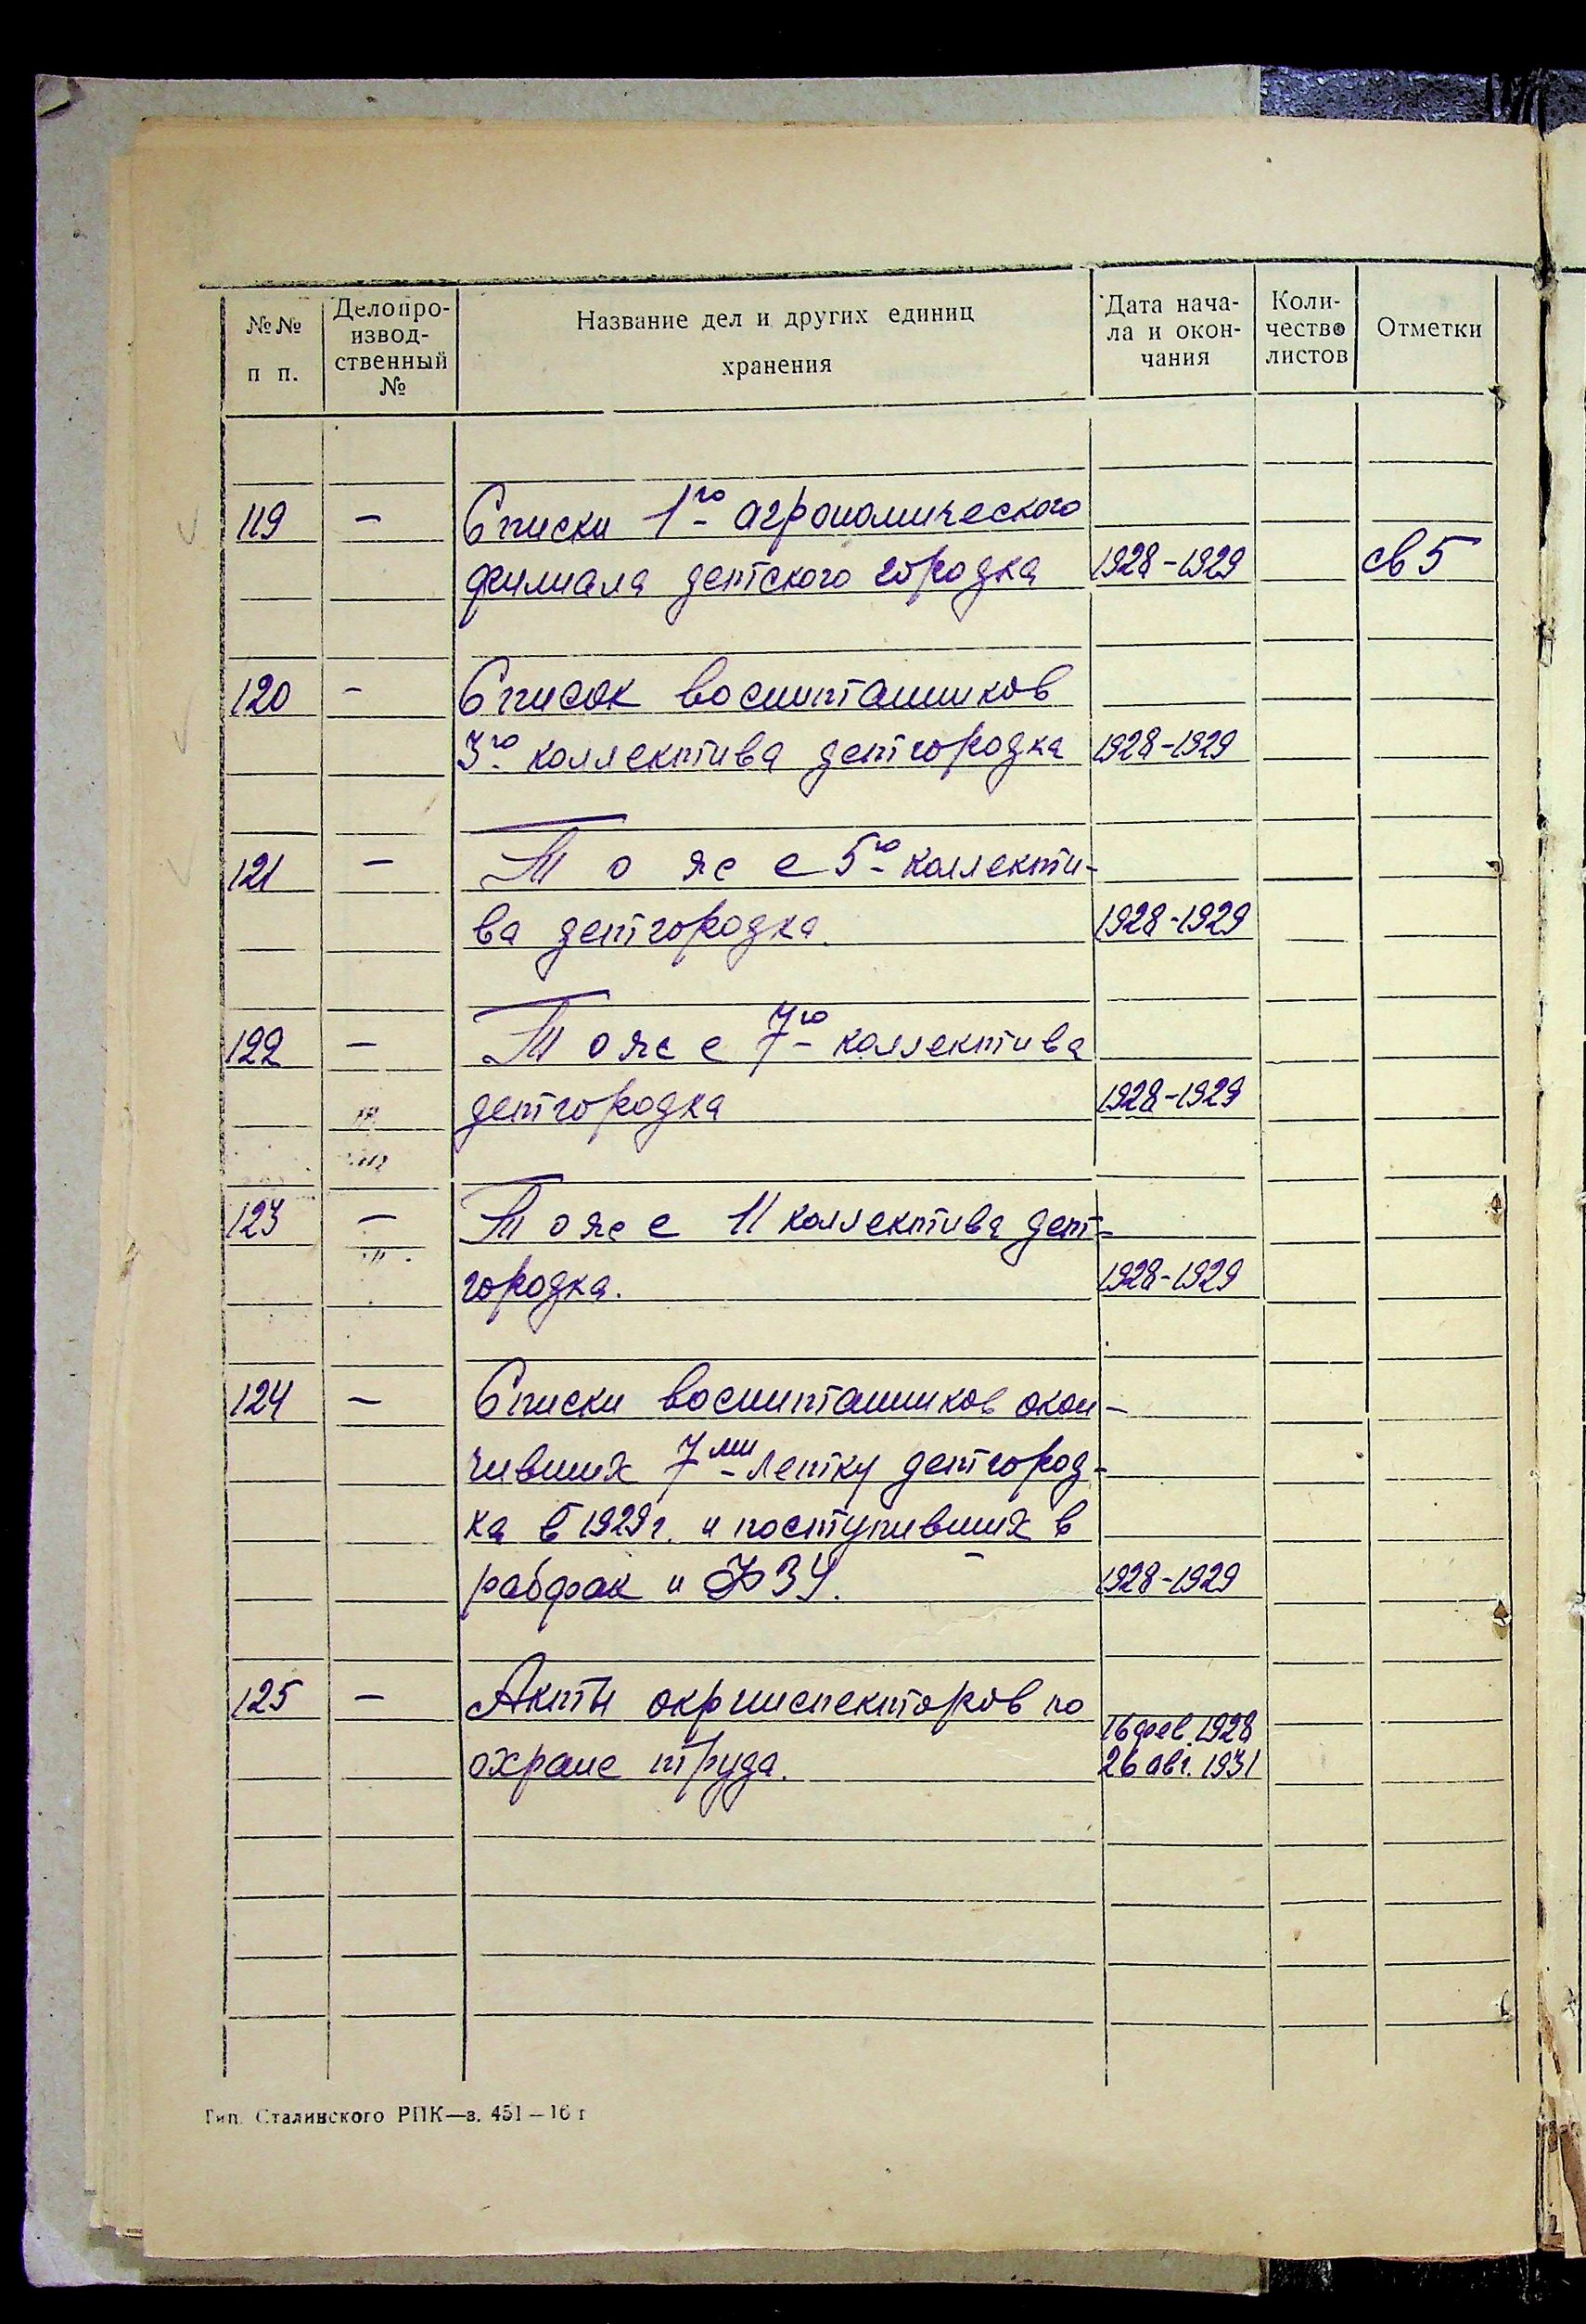 №№ п п.
Делопро-
извод-
ственный
№
Название дел и других единиц
хранения
Дата нача-
ла и окон-
чания
Коли-
чество
листов
Отметки
119 — Списки 1го агрономического
филиала детского городка 1928-1929 св 5
120 - Список воспитанников
3го коллектива детгородка 1928-1929
121 — То же 5го коллекти-
ва детгородка. 1928-1929
122 — То же 7го коллектива
детгородка 1928-1929
123 — То же 11 коллектива дет-
городка. 1928-1929
124 — Списки воспитанников окон-
чивших 7ми летку детгород-
ка в 1929г. и поступивших в
рабфак и ФЗУ. 1928-1929
125 — Акты окринспекторов по
16 фев. 1928
охране труда. 26 авг. 1931
Тип. Сталинского РПК—з. 451—16 г